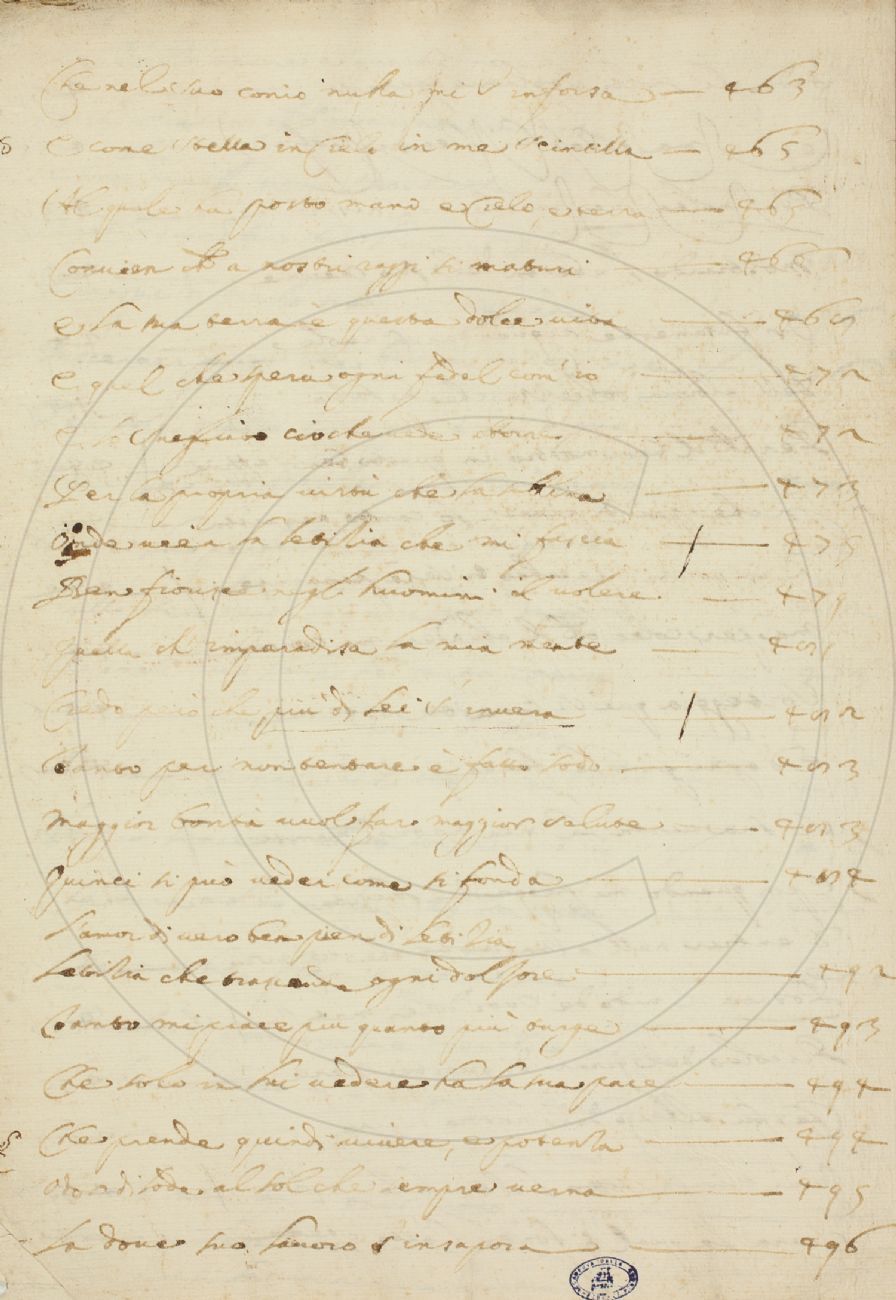 Che nel suo conio nulla mi s'inforsa — 463
E come stella in Cielo in me scintilla — 465
Al quale ha posto mano e Cielo, e terra — 465
Convien ch' a nostri raggi si maturi — 466
e la mia terra è questa dolce vita
e quel che spera ogni fedel com' io — 472
ciò che vede — 472
Per la propria virtù che la sublima — 473
Onde vien la letitia che mi fascia — 475
Ben fiorisce negli huomini il volere — 479
Quella ch' imparadisa la mia mente
Credo però che più di lei s' invera
Tanto per non tentare è fatto sodo
Maggior bontà vuol far maggior salute
Quinci si può veder come si fonda
L'amor di vero ben pien di letitia
Letitia che trascende ogni dolzore — 492
Tanto mi piace più quanto più turge — 493
Che solo in lui vedere ha la sua pace — 494
Che prende quindi vivere, e potenza — 494
Odor di lode al sol che sempre verna — 495
La dove suo lavoro s' insapora — 496